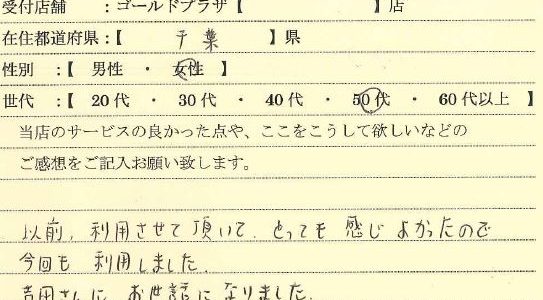 受付店舗 ：ゴールドプラザ【 】店
在住都道府県：【 千葉 】県
性別 ：【 男性 ・ 女性 】
世代 ：【 20代 ・ 30代 ・ 40代 ・ 50代 ・ 60代以上 】
当店のサービスの良かった点や、ここをこうして欲しいなどの
ご感想をご記入お願い致します。
以前，利用させて頂いて，とっても感じよかったので
今回も利用しました．
吉田さんに，お世話になりました．